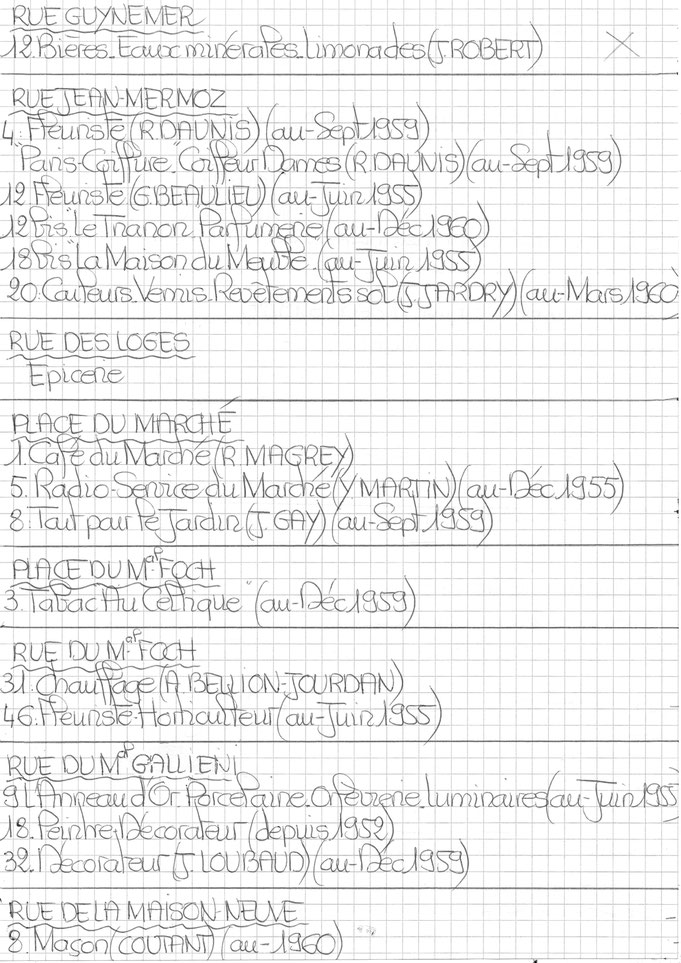 RUE GUYNEMER
12. Bières. Eaux minérales. Limonades (J. ROBERT)
RUE JEAN-MERMOZ
4. Fleuriste (R. DAUNIS) (au-Sept 1959)
"Paris-Coiffure". Coiffeur Dames (R. DAUNIS) (au-Sept 1959)
12. Fleuriste (G. BEAULIEU) (au-Juin 1955)
12 bis "Le Trianon" Parfumerie (au-Déc 1960)
18 bis "La Maison du Meuble" (au-Juin 1955)
20. Couleurs. Vernis. Revêtements sol (J. JARDRY) (au-Mars 1960)
RUE DES LOGES
Epicerie
PLACE DU MARCHÉ
1. Café du Marché (R. MAGREY)
5. Radio-Service du Marché (Y. MARTIN) (au-Déc 1955)
8. Tout pour le Jardin (J. GAY) (au-Sept 1959)
PLACE DU Mal FOCH
3. Tabac "Au Celtique" (au-Déc 1959)
RUE DU Mal FOCH
31. Chauffage (A. BELLION-JOURDAN)
46. Fleuriste-Horticulteur (au-Juin 1955)
RUE DU Mal GALLIENI
9 L'Anneau d'Or. Porcelaine. Orfèvrerie. Luminaires (au-Juin 1955
18. Peintre-Décorateur (depuis 1952)
32. Décorateur (J. LOUBAUD) (au-Déc 1959)
RUE DE LA MAISON-NEUVE
8. Maçon (COUTANT) (au-1960)